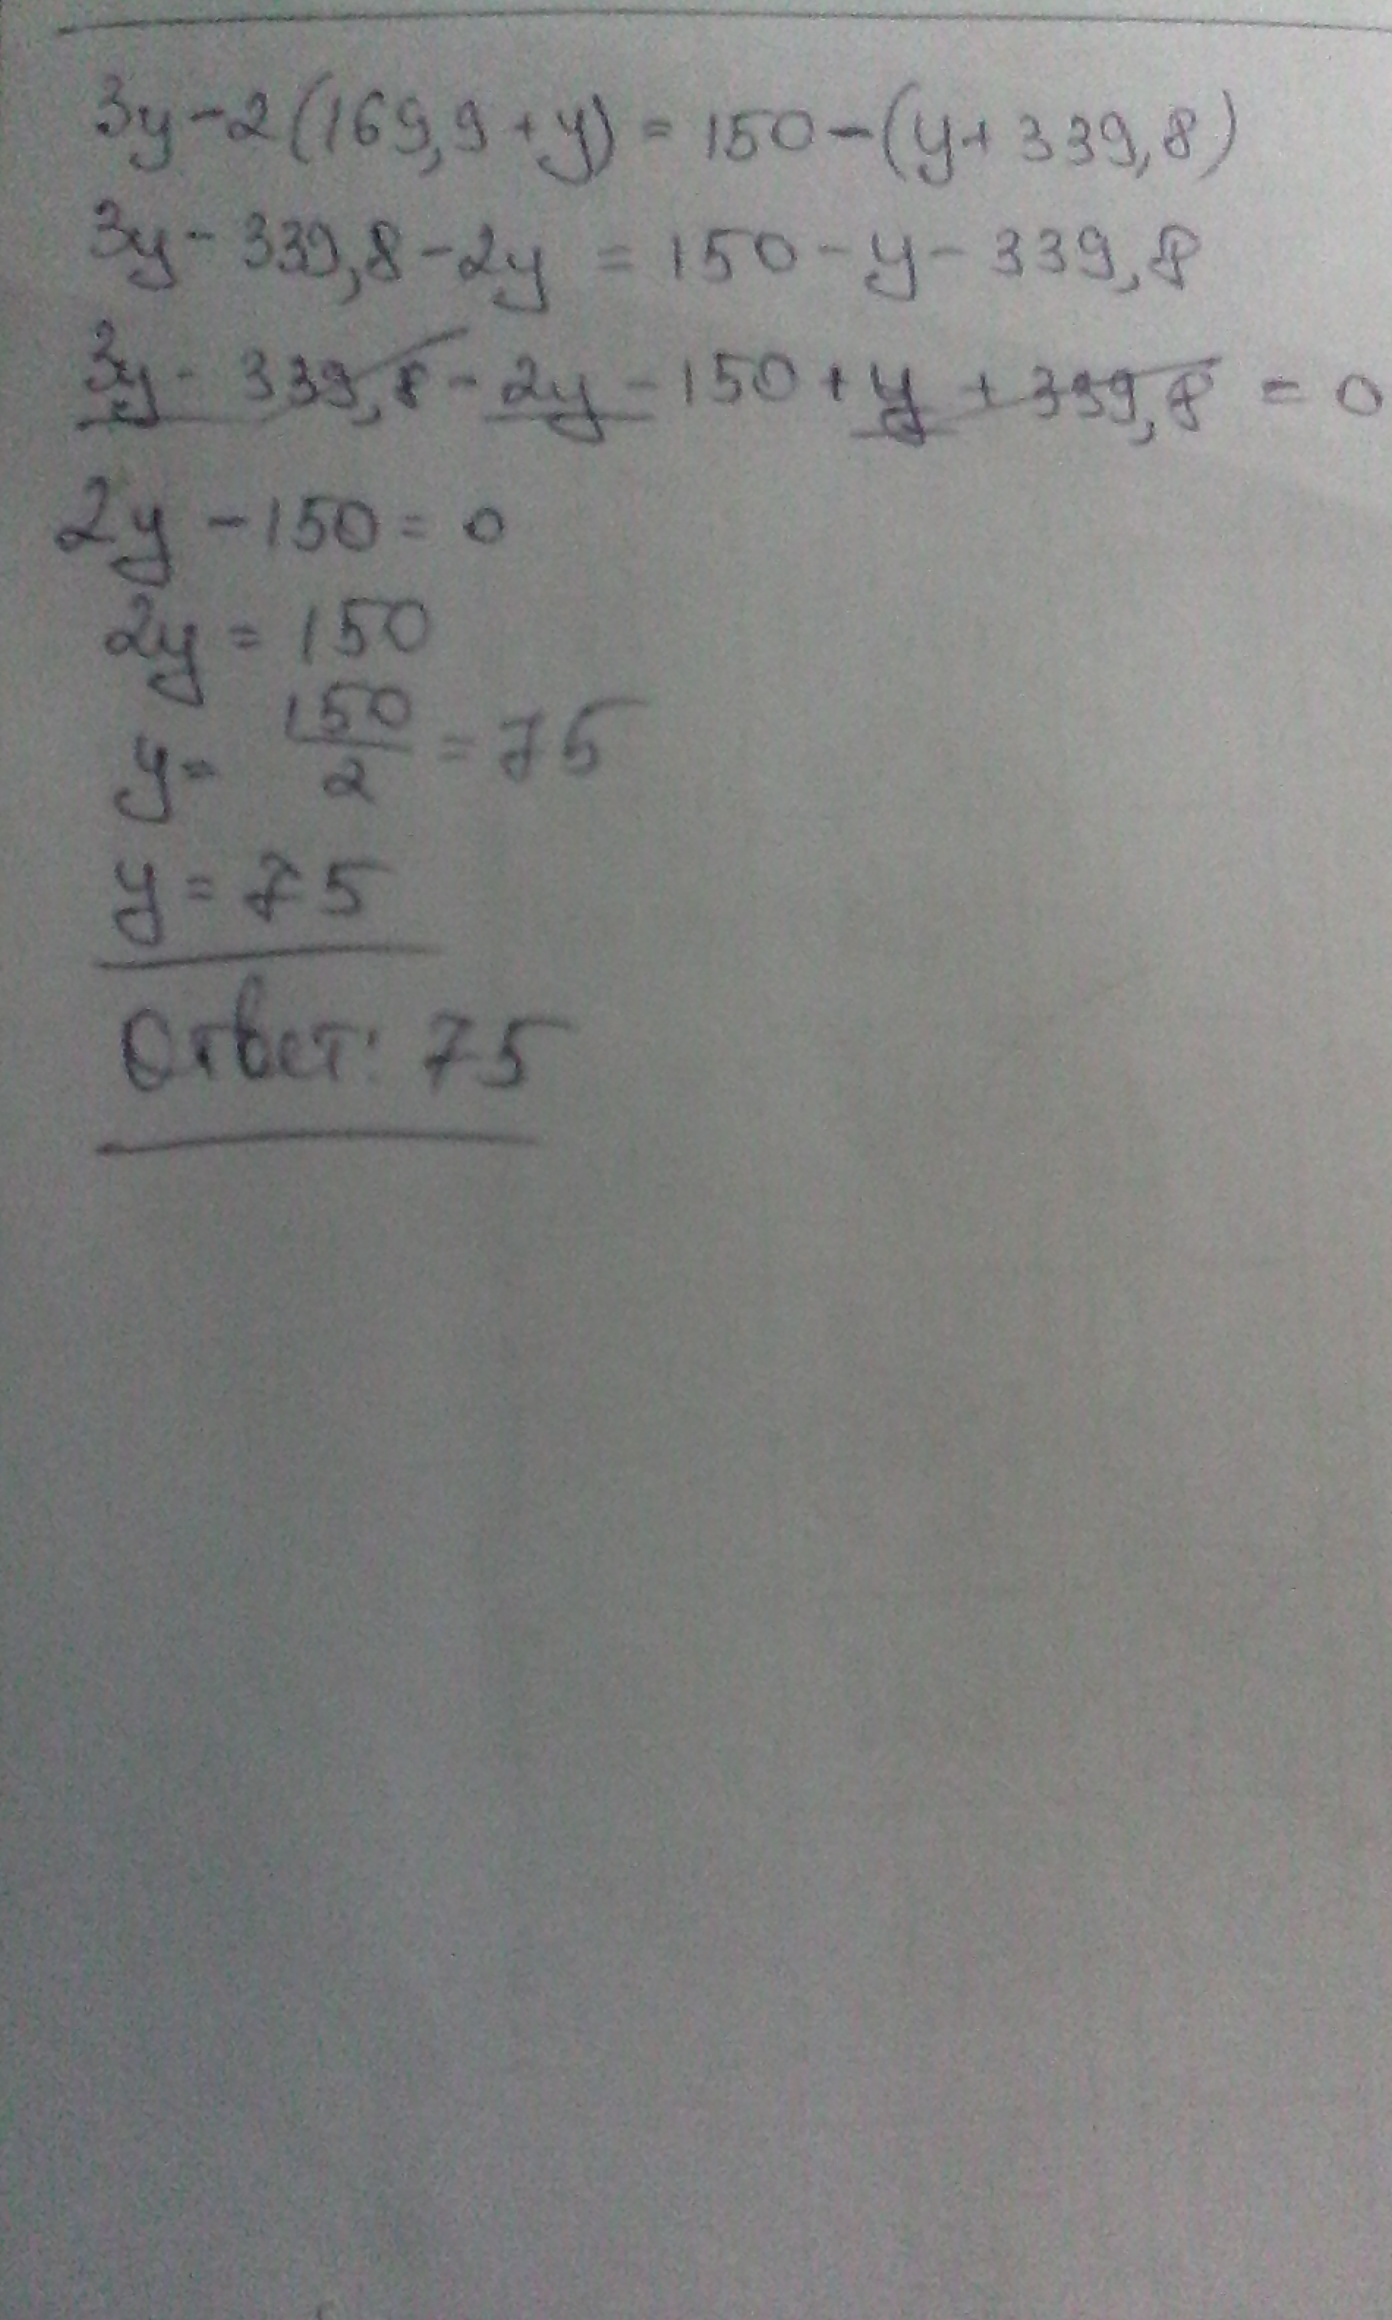 3y-2(169,9+y)=150-(y+339,8)
3y-339,8-2y=150-y-339,8
3y-339,8-2y-150+y+339,8=0
2y-150=0
2y=150
y=150/2=75
y=75
Ответ: 75